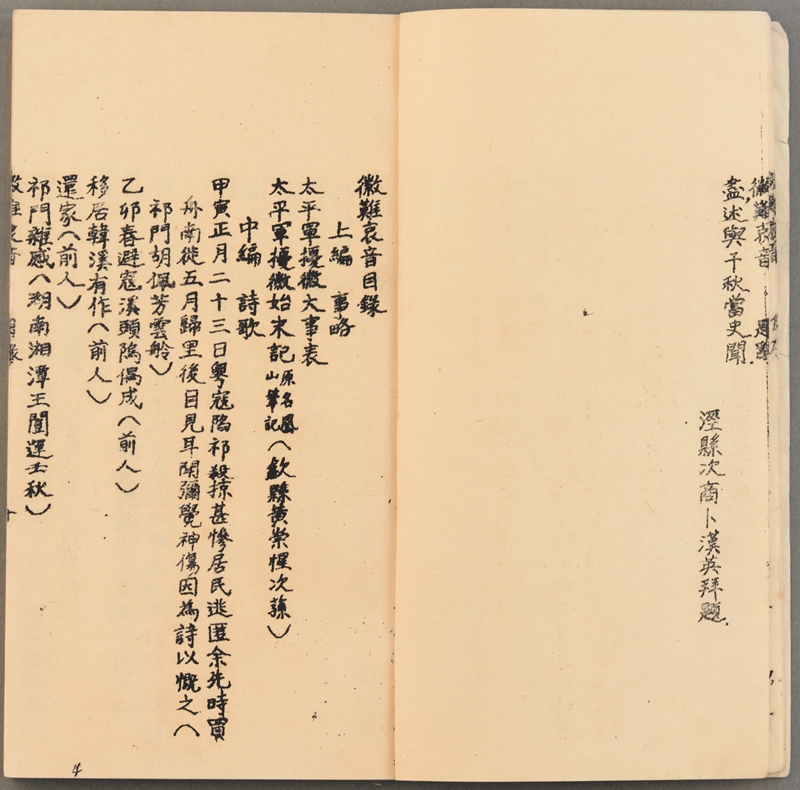 盡述與千秋當史聞
涇縣次商卜漢英拜題
徽難哀音目錄
上編 事略
太平軍擾徽大事表
太平軍擾徽始末記 原名鳳山筆記(歙縣黃崇惺次蓀)
中編 詩歌
甲寅正月二十三日粵寇陷祁殺掠甚慘居民逃匿余先時買
舟南徙五月歸里後目見耳聞彌覺神傷因為詩以慨之(
祁門胡佩芳雲舲)
乙卯春避寇溪頭隖偶成(前人)
移居韓溪有作(前人)
還家(前人)
祁門雜感(湖南湘潭王闓運壬秋)
4